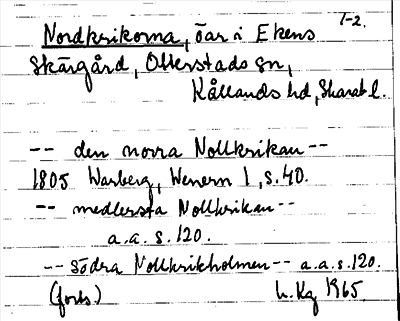 1-2.
Nordkrikorna, öar i Ekens
Skärgård, Otterstads sn,
Kållands hd, Skarab l.
-- den norra Nollkrikan --
1805 Warberg, Wenern 1, s. 40.
-- medlersta Nollkrikan --
a.a. s. 120.
-- södra Nollkrikholmen -- a.a. s. 120.
(forts.) 1965.